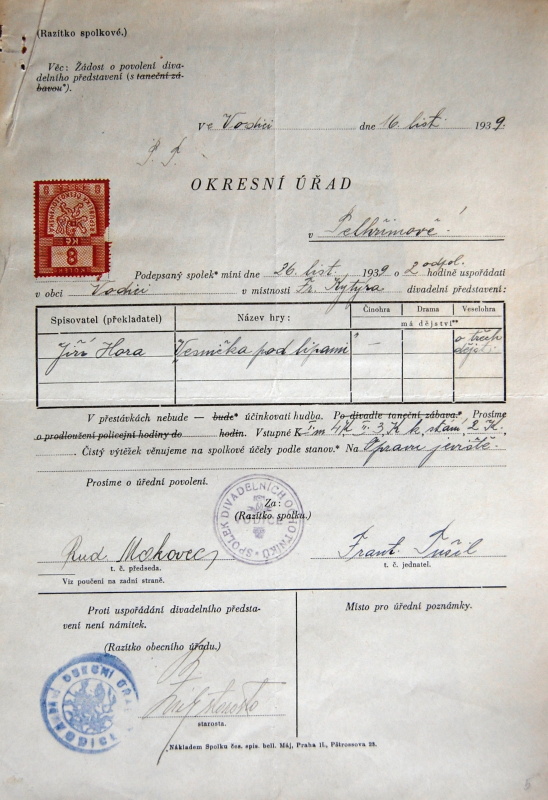 (Razítko spolkové.)
Věc: Žádost o povolení diva-
delního představení (s taneční zá-
bavou*).
Ve Vodici dne 16. list. 1939.
P. T.
OKRESNÍ ÚŘAD
v Pelhřimově!
8
Kč
Podepsaný spolek* míní dne 26. list. 1939 o 2 odpol. hodině uspořádati
v obci Vodici v místnosti Fr. Kytýra divadelní představení:
Spisovatel (překladatel) Název hry: Činohra Drama Veselohra
má dějství**
Jiří Hora Vesnička pod lipami — o třech děj.
V přestávkách nebude — bude* účinkovati hudba. Po divadle taneční zábava.* Prosíme
o prodloužení policejní hodiny do hodin. Vstupné K I. m 4 K II. 3 K k stání 2 K.
Čistý výtěžek věnujeme na spolkové účely podle stanov.* Na Opravu jeviště.
Prosíme o úřední povolení.
Za:
(Razítko spolku.)
SPOLEK DIVADELNÍCH OCHOTNÍKŮ
VODICE
Rud. Makovec Frant. Tušil
t. č. předseda. t. č. jednatel.
Viz poučení na zadní straně.
Proti uspořádání divadelního předsta-
vení není námitek.
(Razítko obecního úřadu.)
Místo pro úřední poznámky.
starosta.
Nákladem Spolku čes. spis. bell. Máj, Praha II., Pštrossova 23.